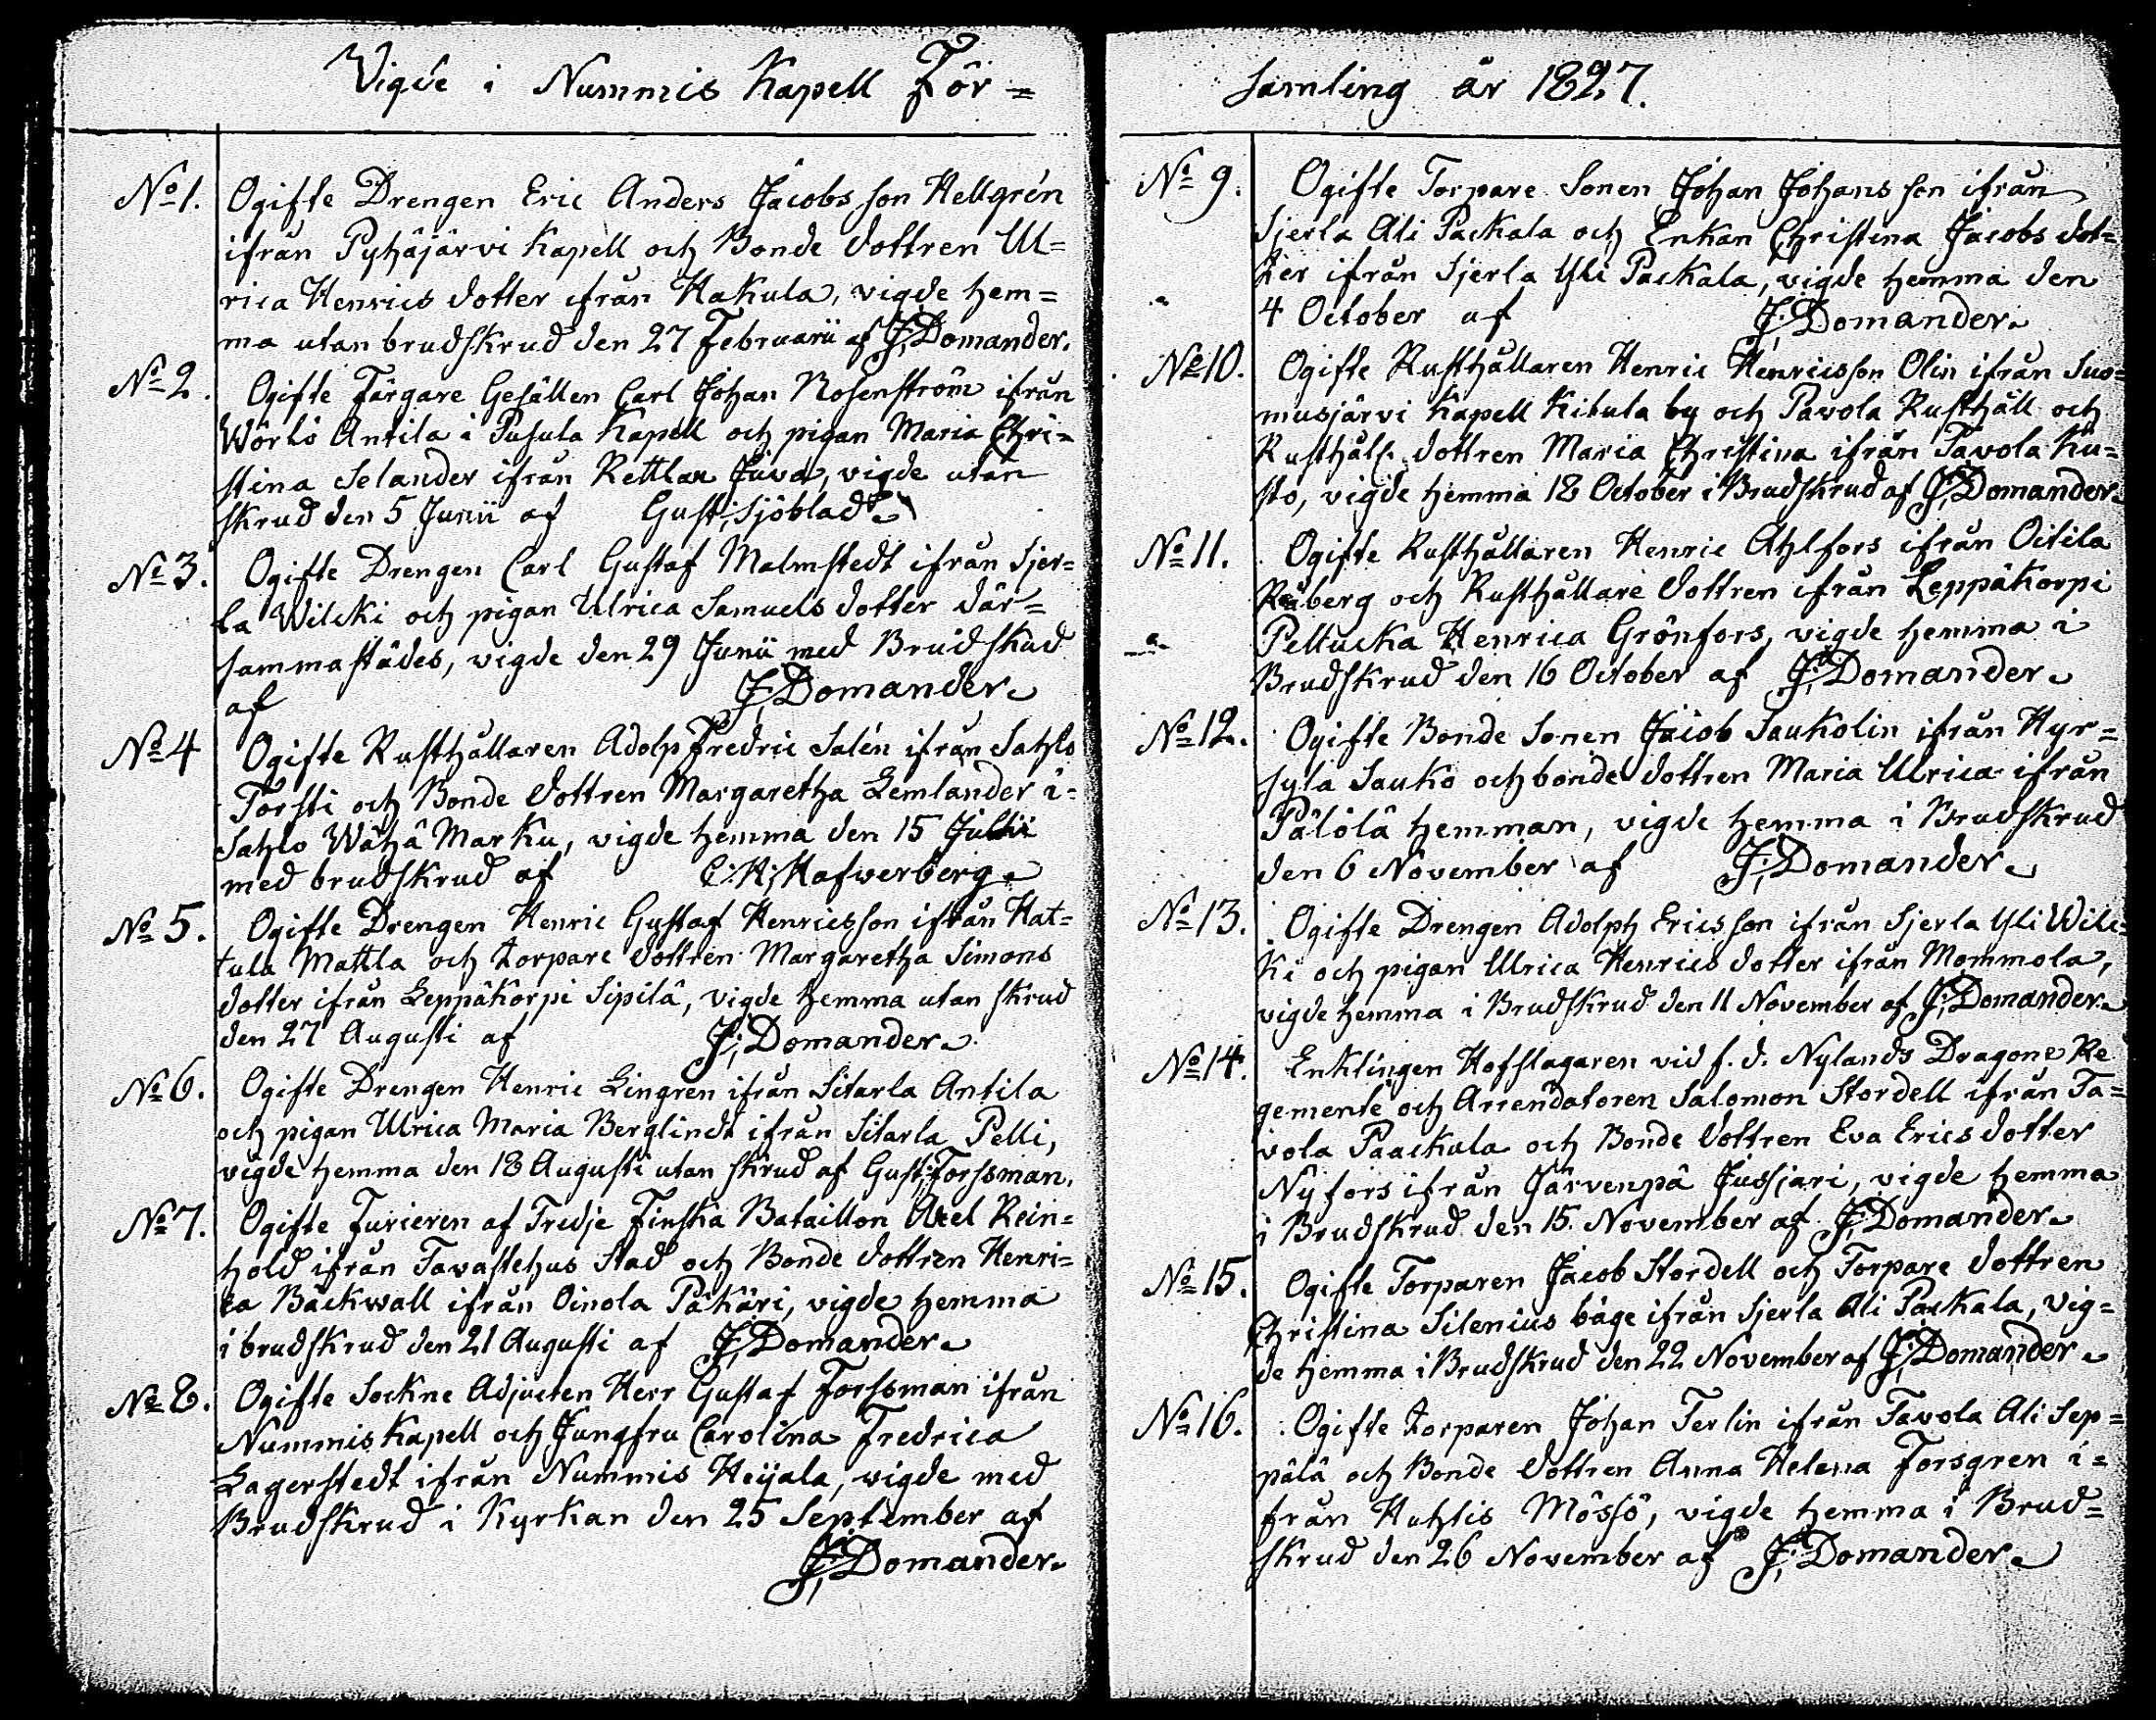 Vigde i Nummis Kapell För=
No 1. Ogifte Drengen Eric Anders Jacobs son Hellgrén
ifrån Pyhäjärvi Kapell och Bonde dottren Ul=
rica Henrics dotter ifrån Hakula, vigde hem=
ma utan brudskrud den 27 Februarii af J: Domander.
No 2. Ogifte Färgare Gesällen Carl Johan Rosenström ifrån
Wörlö Antila i Pusula Kapell och pigan Maria Chri=
stina Selander ifrån Rettlax Juva, vigde utan
skrud den 5 Junii af Gust: Sjöblad.
No 3. Ogifte Drengen Carl Gustaf Malmstedt ifrån Sjer=
la Wilcki och pigan Ulrica Samuels dotter där=
sammastädes, vigde den 29 Junii med Brudskrud
af J: Domander.
No 4 Ogifte Rusthållaren Adolp Fredric Salén ifrån Sahlo
Torsti och Bonde dottren Margaretha Lemlander i=
Sahlo Wähä Marku, vigde hemma den 15 Julii
med brudskrud af C: H: Hafwerberg.
No 5. Ogifte Drengen Henric Gustaf Henricsson ifrån Hat=
tula Mattla och torpare dottren Margaretha Simons
dotter ifrån Leppäkorpi Sipilä, vigde hemma utan skrud
den 27 Augusti af J: Domander.
No 6. Ogifte Drengen Henric Lingren ifrån Sitarla Antila
och pigan Ulrica Maria Berglindt ifrån Sitarla Pelli,
vigde hemma den 18 Augusti utan skrud af Gust: Forssman.
No 7. Ogifte Furieren af Tredje Finska Bataillon Axel Rein=
hold ifrån Tavastehus Stad och Bonde dottren Henri=
ca Bäckwall ifrån Oinola Päkäri, vigde hemma
i brudskrud den 21 Augusti af J: Domander.
No 8. Ogifte Sockne Adjucten Herr Gustaf Forssman ifrån
Nummis Kapell och Jungfru Carolina Fredrica
Lagerstedt ifrån Nummis Heijala, vigde med
Brudskrud i Kyrkan den 25 September af
J: Domander.
samling år 1827.
No 9. Ogifte Torpare Sonen Johan Johans son ifrån
Sjerla Ali Packala och Enkan Christina Jacobs dot=
ter ifrån Sjerla Yli Packala, vigde hemma den
4 October af J: Domander.
No 10. Ogifte Rusthållaren Henric Henricsson Olin ifrån Suo=
musjärvi Kapell Kitula by och Pavola Rusthåll och
Rusthåls. dottren Maria Christina ifrån Tavola Ku=
sto, vigde hemma 18 October i Brudskrud af J: Domander.
No 11. Ogifte Rusthållaren Henric Ahlfors ifrån Oitila
Råberg och Rusthållare dottren ifrån Leppäkorpi
Peltucka Henrica Grönfors, vigde hemma i
Brudskrud den 16 October af J: Domander.
No 12. Ogifte Bonde Sonen Jacob Saukolin ifrån Hyr=
syla Sauko och bonde dottren Maria Ulrica ifrån
Pälölä hemman, vigde hemma i Brudskrud
den 6 November af J: Domander.
No 13. Ogifte Drengen Adolph Erics son ifrån Sjerla Yli Wilc=
ki och pigan Ulrica Henrics dotter ifrån Mommola,
vigde hemma i Brudskrud den 11 November af J: Domander.
No 14. Enklingen Hofslagaren vid f. d. Nylands Dragone Re
gemente och Arrendatoren Salomon Stordell ifrån Ta=
vola Paackala och Bonde dottren Eva Erics dotter
Nyfors ifrån Järvenpä Jussjari, vigde hemma
i Brudskrud den 15. November af J: Domander.
No 15. Ogifte Torparen Jacob Stordell och Torpare dottren
Christina Silenius båge ifrån Sjerla Ali Packala, vig=
de hemma i Brudskrud den 22 November af J: Domander.
No 16. Ogifte torparen Johan Terlin ifrån Tavola Ali Sep=
pälä och Bonde dottren Anna Helena Forsgren i=
från Huhtis Mössö, vigde hemma i Brud=
skrud den 26 November af J: Domander.